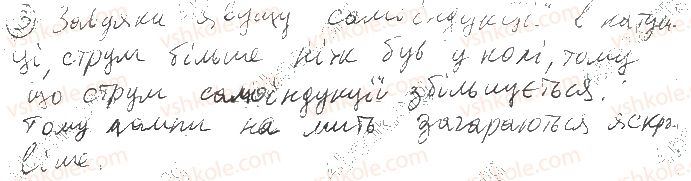 3) Завдяки явищу самоіндукції в катуш-
ці, струм більше ніж був у колі, тому
що струм самоіндукції збільшується.
Тому лампи на мить загараються яскра-
віше.